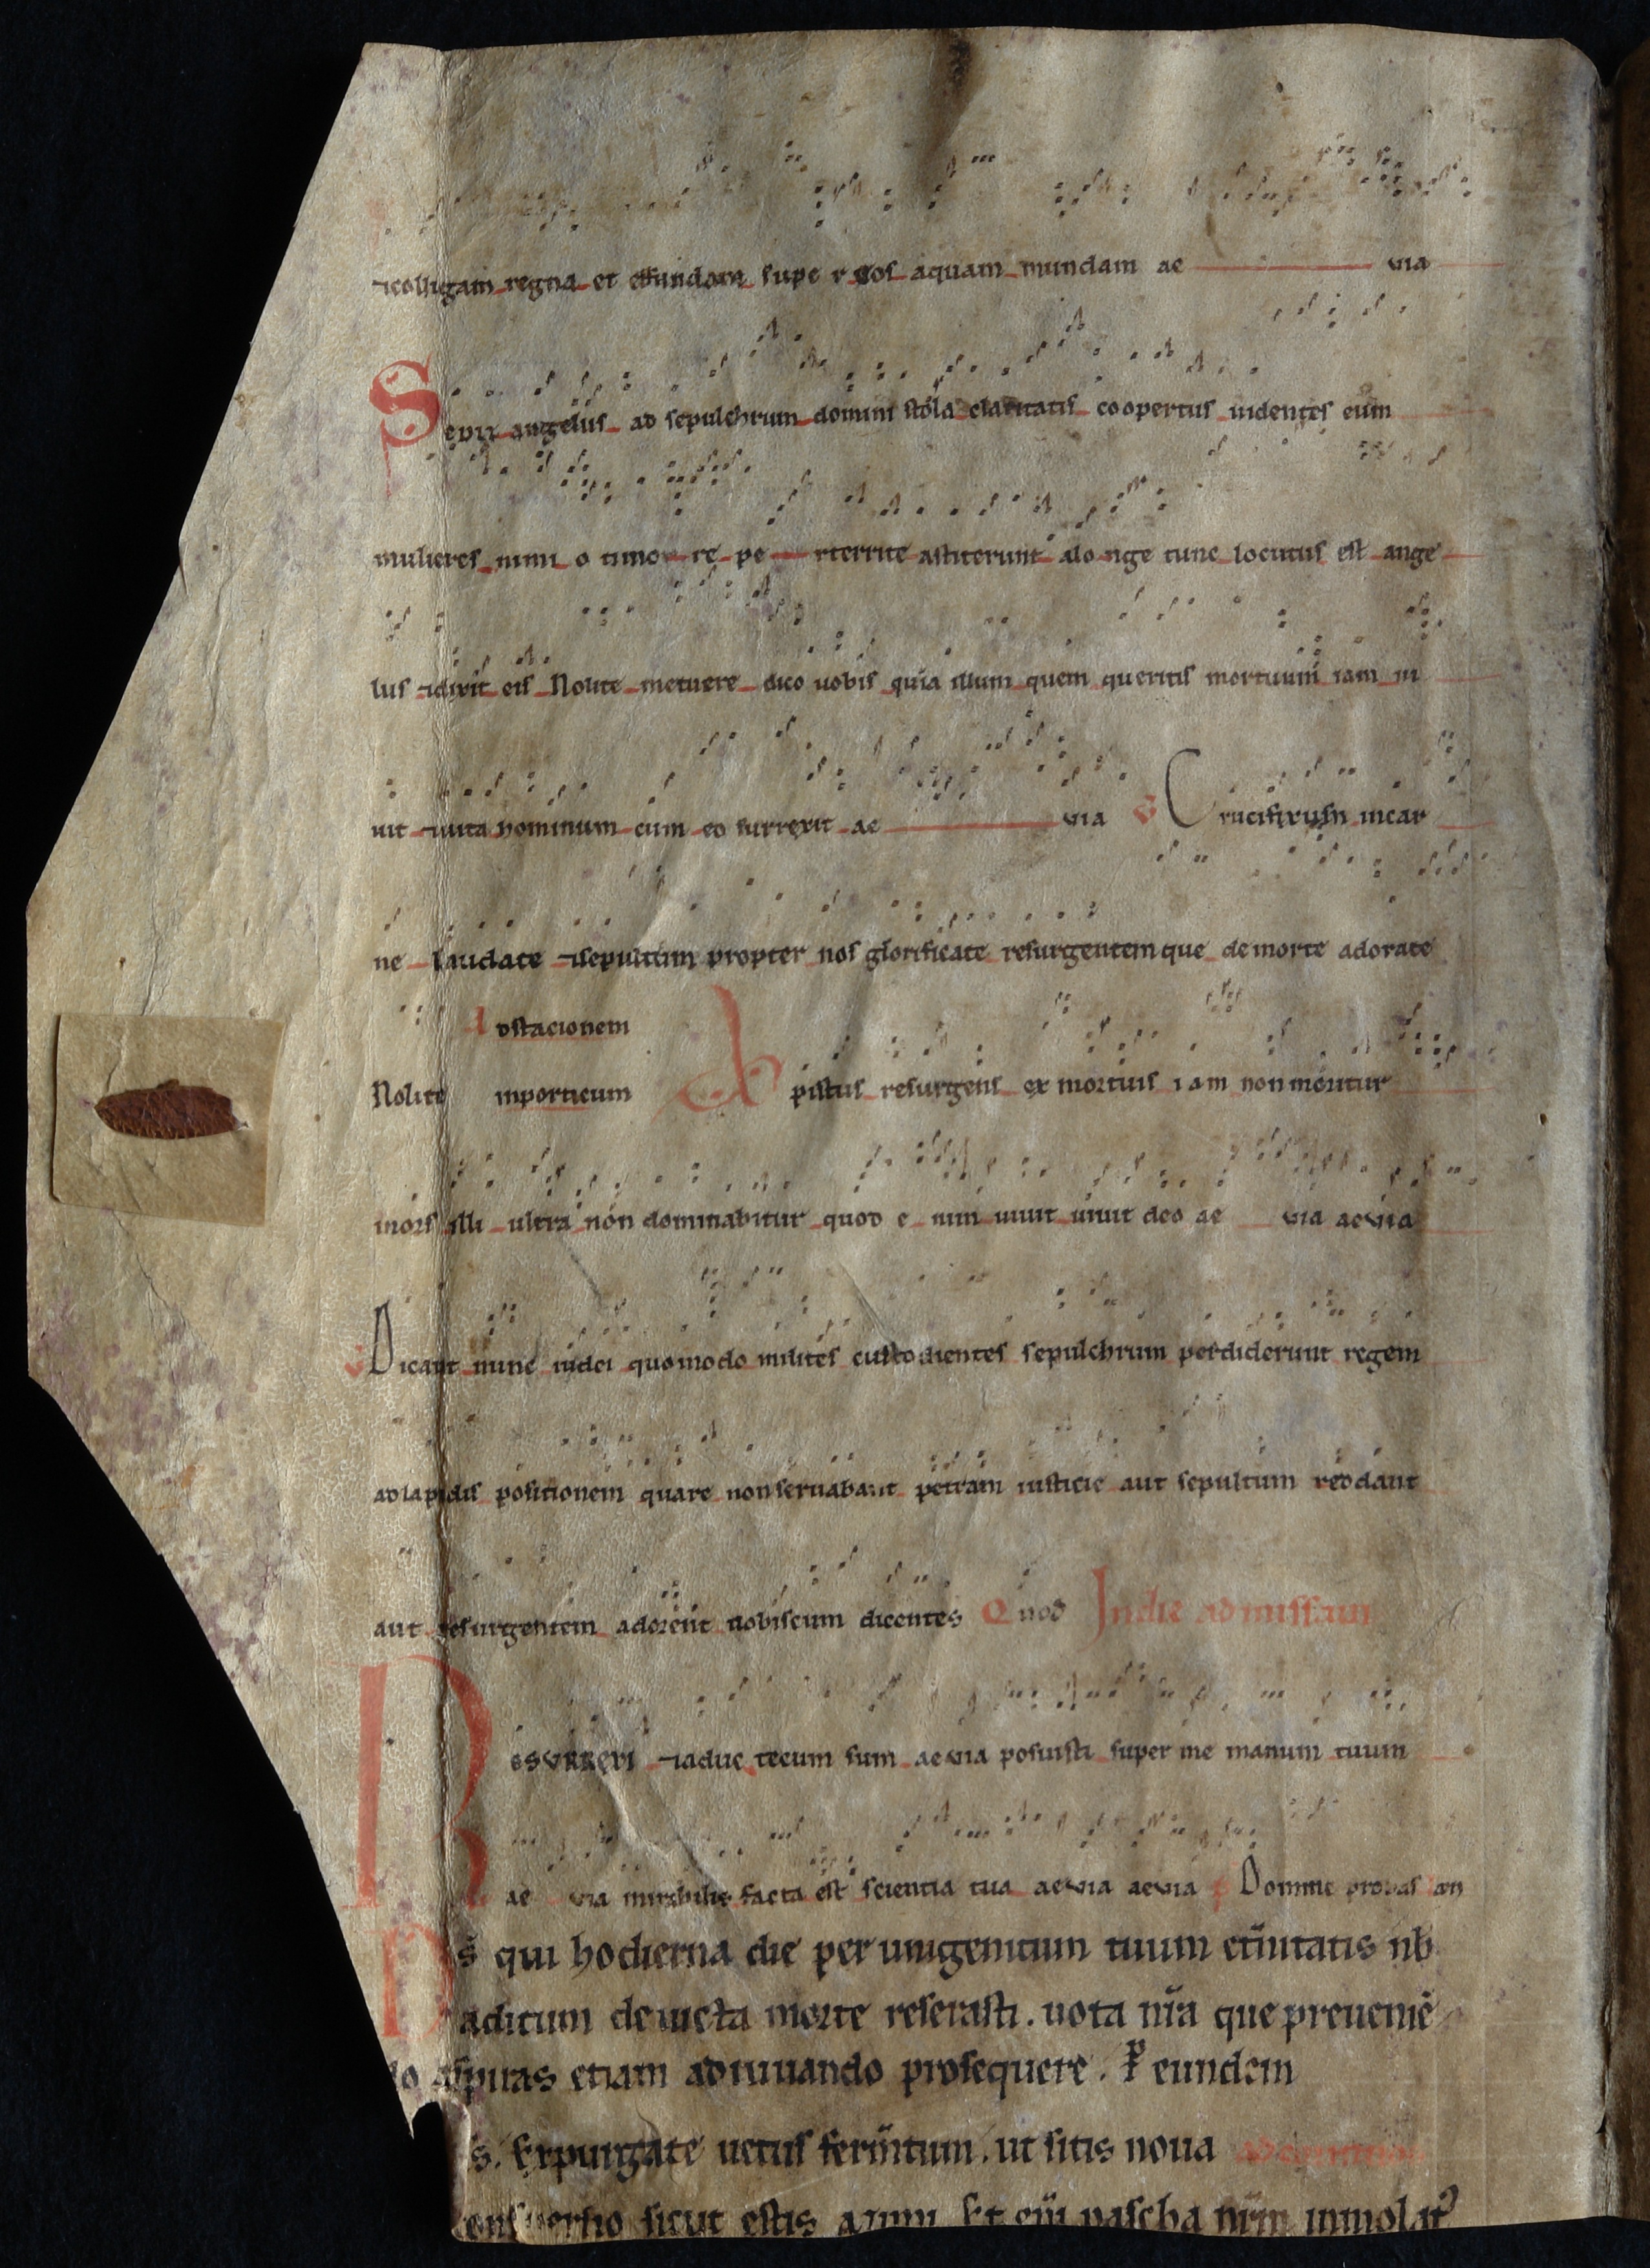 ⁊colligam regna et effundam supe r eos aquam mundam ae uia
Sedit angelus ad sepulchrum domini stola claritatis coopertus uidentes eum
mulieres nimi o timo re pe rterrite astiterunt alo nge tunc locutus est ange
lus ⁊dixit eis Nolite metuere dico uobis quia illum quem queritis mortuum iam ui
uit ⁊uita hominum cum eo surrexit ae uia v Crucifixum incar
ne laudate ⁊sepultum propter nos glorificate resurgentemque de morte adorate
Adstacionem
Nolite inporticum Xpistus resurgens ex mortuis iam non moritur
mors illi ultra non dominabitur quod e nim uiuit uiuit deo ae uia aeuia
v Dicant nunc iudei quomodo milites custodientes sepulchrum perdiderunt regem
ad lapidis positionem quare non seruabant petram iusticie aut sepultum reddant
aut resurgentem adorent nobiscum dicentes Quod In die ad missam
Resurrexi ⁊aduc tecum sum aeuia posuisti super me manum tuum
ae uia mirabilis facta est scientia tua aeuia aeuia Domine probas
Ds̄ qui hodierna die per unigenitum tuum et̄nitatis nb̄
aditum deuicta morte reserasti. uota nr̄a que preueniē
do aspiras etiam adiuuando prosequere. P̄ eundem
s. Expurgate uetusferm̄tum. ut sitis noua
consꝑersio sicut estis azimi Et eni pascha nr̄m immolat᷒